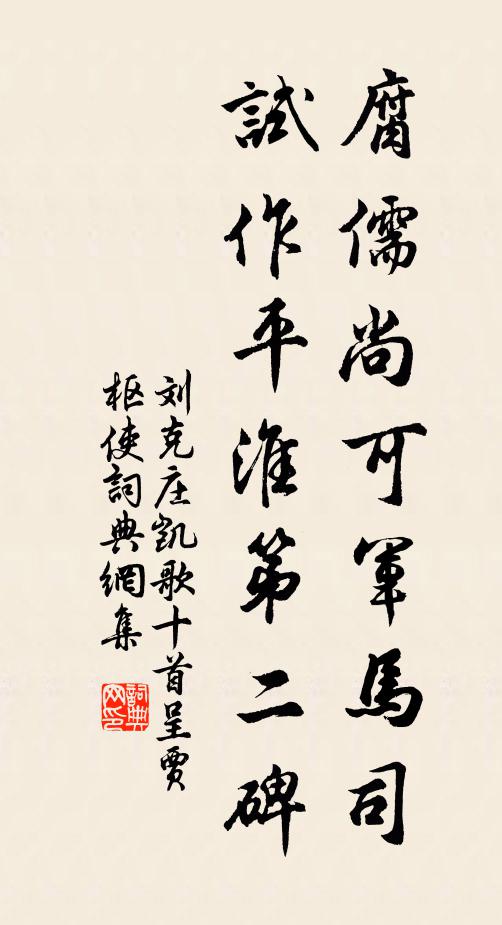 腐儒尚可軍馬司
試作平淮第二碑
刘克庄凯歌十首呈贾
枢使詞典網集
詞典網印